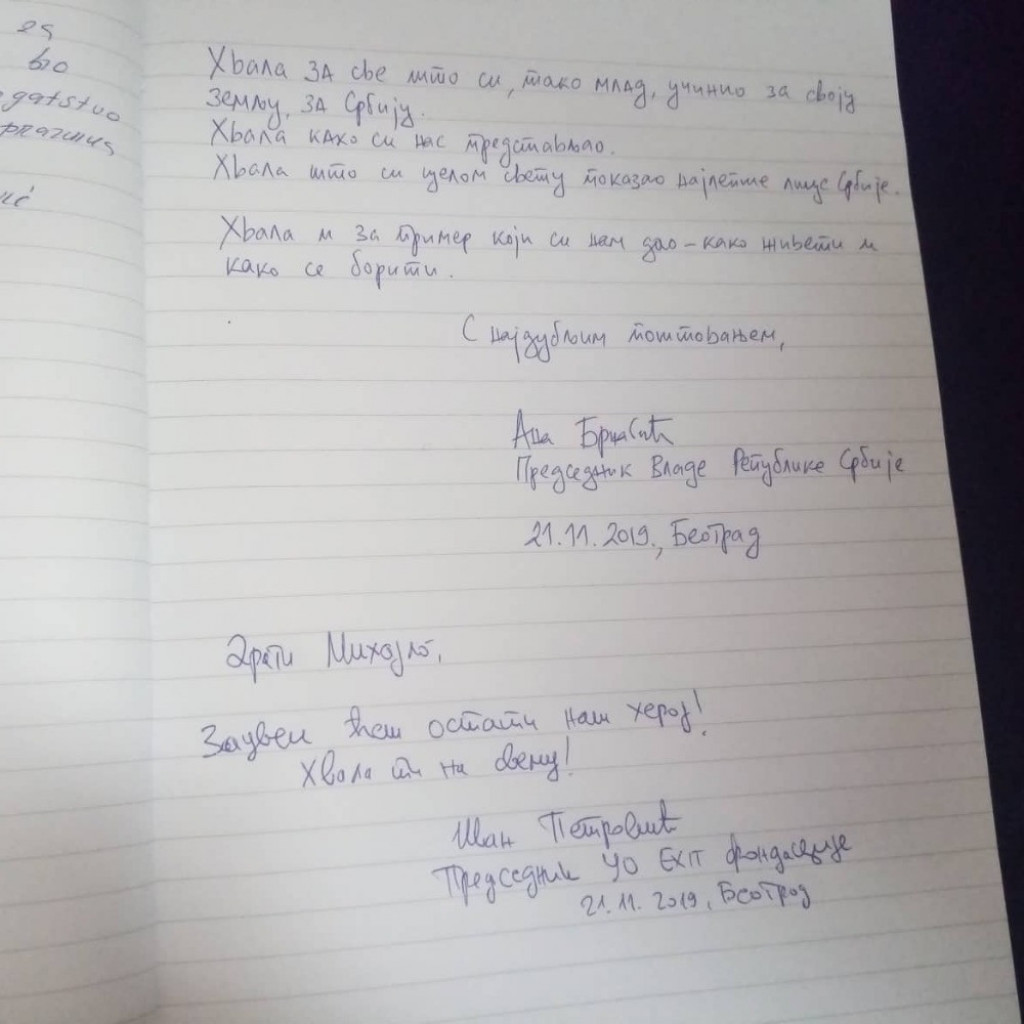 es
bio
gatstvo
praznina
ić
Хвала за све што си, тако млад, учинио за своју
земљу, за Србију.
Хвала како си нас представљао.
Хвала што си целом свету показао најлепше лице Србије.
Хвала и за пример који си нам дао – како живети и
како се борити.
С најдубљим поштовањем,
Ана Брнабић
Председник Владе Републике Србије
21.11.2019., Београд
Драги Михајло,
Заувек ћеш остати наш херој!
Хвала ти на свему!
Иван Петровић
Председник УО EXIT фондације
21.11.2019, Београд